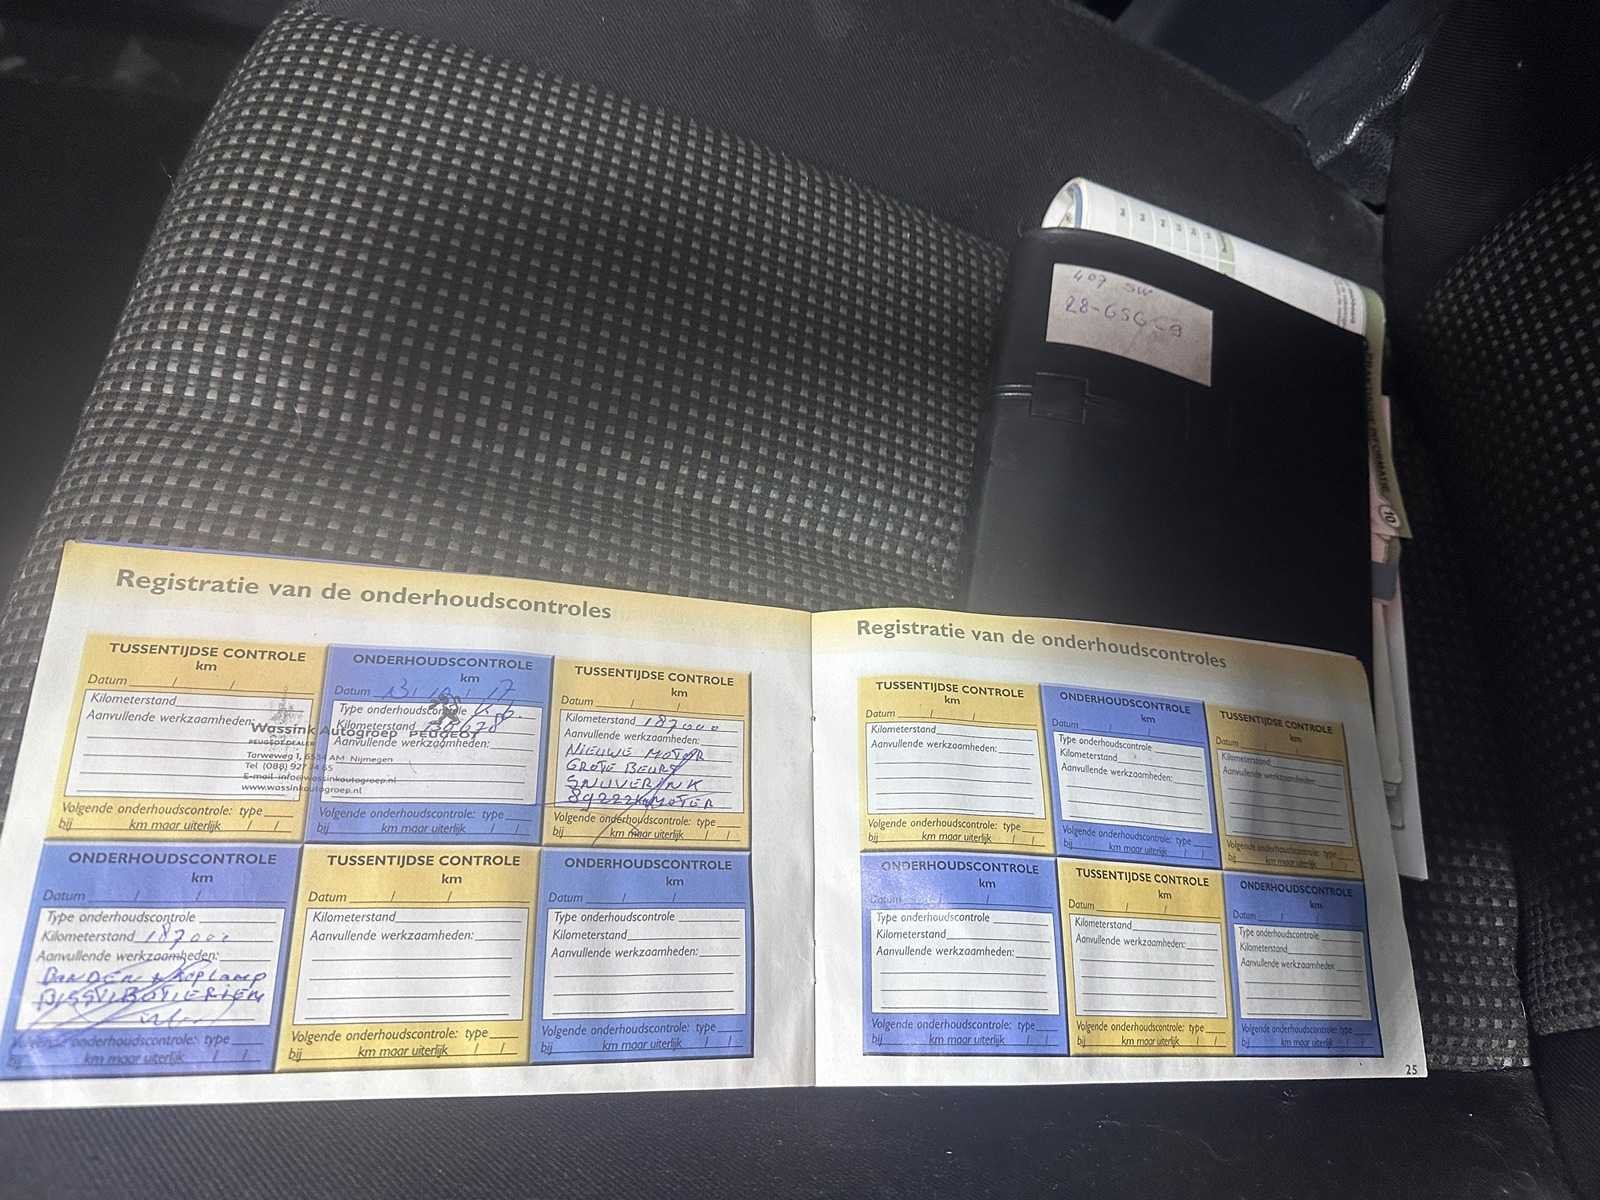 407 SW
Registratie van de onderhoudscontroles
TUSSENTIJDSE CONTROLE
km
Datum / /
Kilometerstand
Aanvullende werkzaamheden:
Volgende onderhoudscontrole: type
bij km maar uiterlijk / /
ONDERHOUDSCONTROLE
km
Datum 13 / 10 / 17
Type onderhoudscontrole
Kilometerstand
Aanvullende werkzaamheden:
Volgende onderhoudscontrole: type
bij km maar uiterlijk / /
Wassink Autogroep PEUGEOT
PEUGEOT DEALER
Tarweweg 1, AM Nijmegen
Tel (088)
E-mail info@wassinkautogroep.nl
www.wassinkautogroep.nl
TUSSENTIJDSE CONTROLE
km
Datum / /
Kilometerstand 187000
Aanvullende werkzaamheden:
NIEUWE MOTOR
GROTE BEURT
SNUVERINK
89222 KM MOTER
Volgende onderhoudscontrole: type
bij km maar uiterlijk / /
ONDERHOUDSCONTROLE
km
Datum / /
Type onderhoudscontrole
Kilometerstand 187000
Aanvullende werkzaamheden:
BANDEN
Volgende onderhoudscontrole: type
bij km maar uiterlijk / /
TUSSENTIJDSE CONTROLE
km
Datum / /
Kilometerstand
Aanvullende werkzaamheden:
Volgende onderhoudscontrole: type
bij km maar uiterlijk / /
ONDERHOUDSCONTROLE
km
Datum / /
Type onderhoudscontrole
Kilometerstand
Aanvullende werkzaamheden:
Volgende onderhoudscontrole: type
bij km maar uiterlijk / /
Registratie van de onderhoudscontroles
TUSSENTIJDSE CONTROLE
km
Datum / /
Kilometerstand
Aanvullende werkzaamheden:
Volgende onderhoudscontrole: type
bij km maar uiterlijk / /
ONDERHOUDSCONTROLE
km
Datum / /
Type onderhoudscontrole
Kilometerstand
Aanvullende werkzaamheden:
Volgende onderhoudscontrole: type
bij km maar uiterlijk / /
TUSSENTIJDSE CONTROLE
km
Datum / /
Kilometerstand
Aanvullende werkzaamheden:
Volgende onderhoudscontrole: type
bij km maar uiterlijk / /
ONDERHOUDSCONTROLE
km
Datum / /
Type onderhoudscontrole
Kilometerstand
Aanvullende werkzaamheden:
Volgende onderhoudscontrole: type
bij km maar uiterlijk / /
TUSSENTIJDSE CONTROLE
km
Datum / /
Kilometerstand
Aanvullende werkzaamheden:
Volgende onderhoudscontrole: type
bij km maar uiterlijk / /
ONDERHOUDSCONTROLE
km
Datum / /
Type onderhoudscontrole
Kilometerstand
Aanvullende werkzaamheden:
Volgende onderhoudscontrole: type
bij km maar uiterlijk / /
25